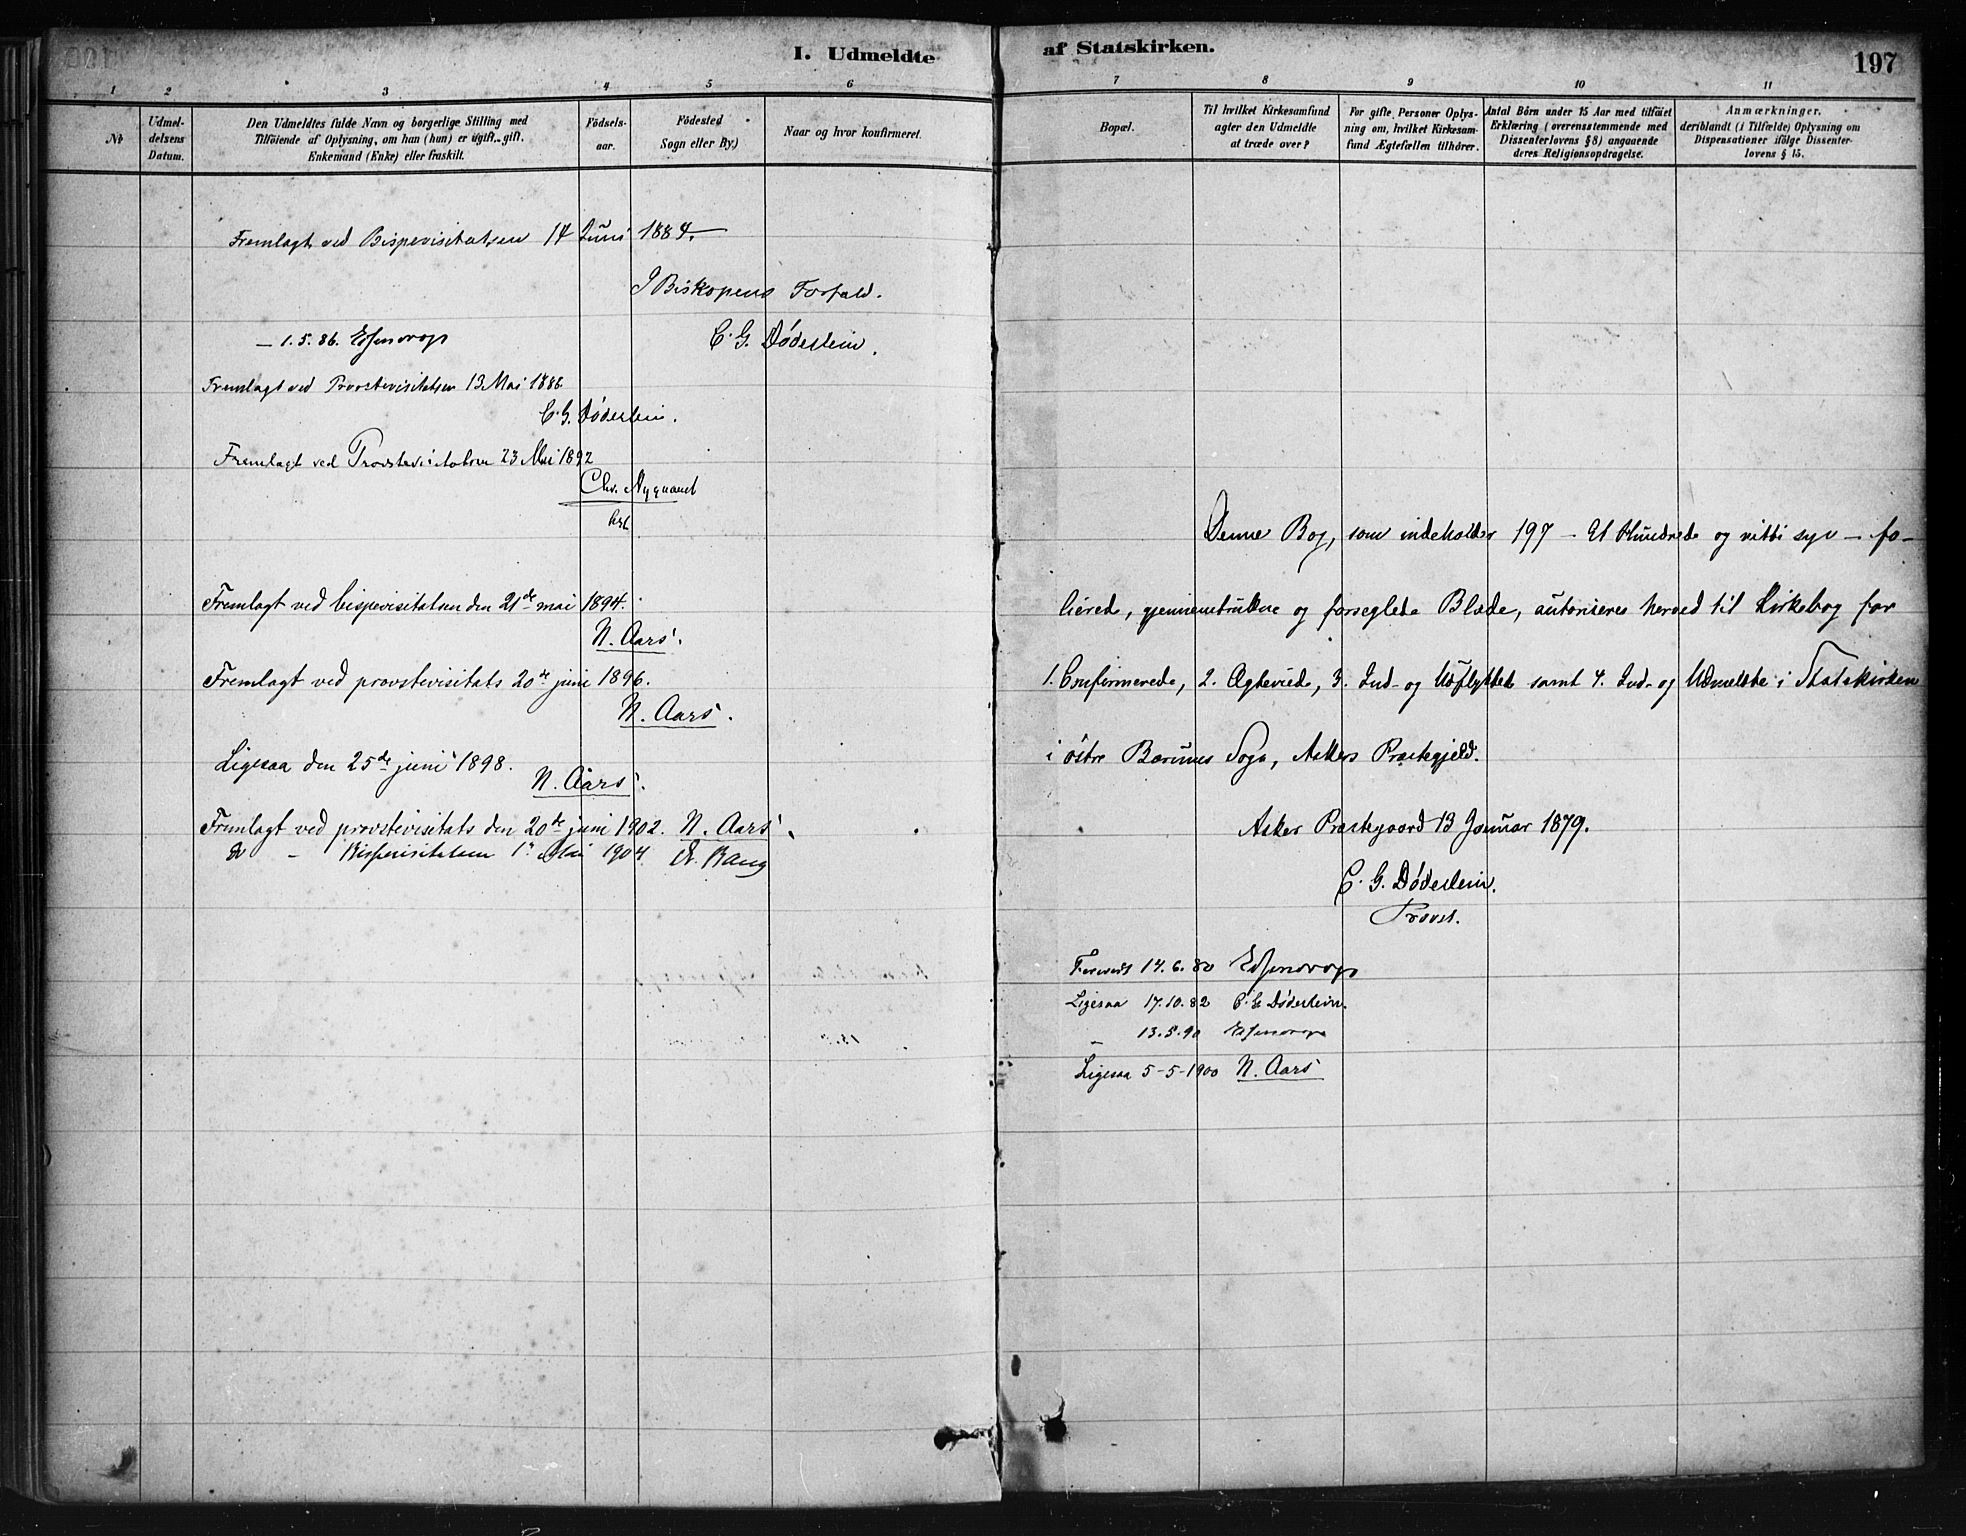 I. Udmeldte
1 2 3 4 5 6
№
Udmel-
delsens
Datum.
Den Udmeldtes fulde Navn og borgerlige Stilling med
Tilföiende af Oplysning, om han (hun) er ugift, gift,
Enkemand (Enke) eller fraskilt.
Födsels-
aar.
Födested
Sogn eller By.)
Naar og hvor konfirmeret.
Fremlagt ved Bispevisitatsen 14 Juni 1884.
I Biskopens Forfald.
C. G. Døderlein.
– 1.5.86. Essendrop
Fremlagt ved Provstevisitatsen 13 Mai 1886
C. G. Døderlein.
Fremlagt ved Provstevisitatsen 23 Mai 1892
Chr. Nyquand
Fremlagt ved bispevisitatsen den 21de mai 1894.
N. Aars.
Fremlagt ved provstevisitats 20de juni 1896.
N. Aars.
Ligesaa den 25de juni 1898.
N. Aars.
Fremlagt ved provstevisitats den 20de juni 1902. N. Aars.
– Bispevisitatsen 1' Mai 1904 A. Bang
af Statskirken.
197
7 8 9 10 11
Bopæl.
Til hvilket Kirkesamfund
agter den Udmeldte
at træde over?
For gifte Personer Oplys-
ning om, hvilket Kirkesam-
fund Ægtefællen tilhörer.
Antal Börn under 15 Aar med tilföiet
Erklæring (overensstemmende med
Dissenterlovens § 8) angaaende
deres Religionsopdragelse.
Anmærkninger.
deriblandt (i Tilfælde) Oplysning om
Dispensationer ifölge Dissenter-
lovens § 15.
Denne Bog, som indeholder 197 – Et Hundrede og nitti syv – fo-
lierede, gjennemtrukne og forseglede Blade, autoriseres herved til Kirkebog for
1. Confirmerede, 2. Ægteviede, 3. Ind- og Udflyttede samt 4. Ind- og Udmeldte i Statskirken
i østre Bærums Sogn, Askers Præstegjeld.
Asker Præstegaard 13 Januar 1879.
C. G. Døderlein.
Provst.
Foreviist 14.6.80 Essendrop
Ligesaa 17.10.82 C. G. Døderlein.
– 13.5.90 Essendrop
Ligesaa 5-5-1900 N. Aars